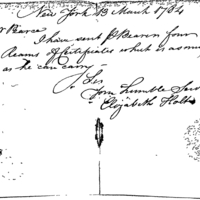 New York 13 March 1784
Pearce
I have sent p Bearer four
Reams of Certificates which is as much
as he can carry
Your humble Serv
Elizabeth Holt